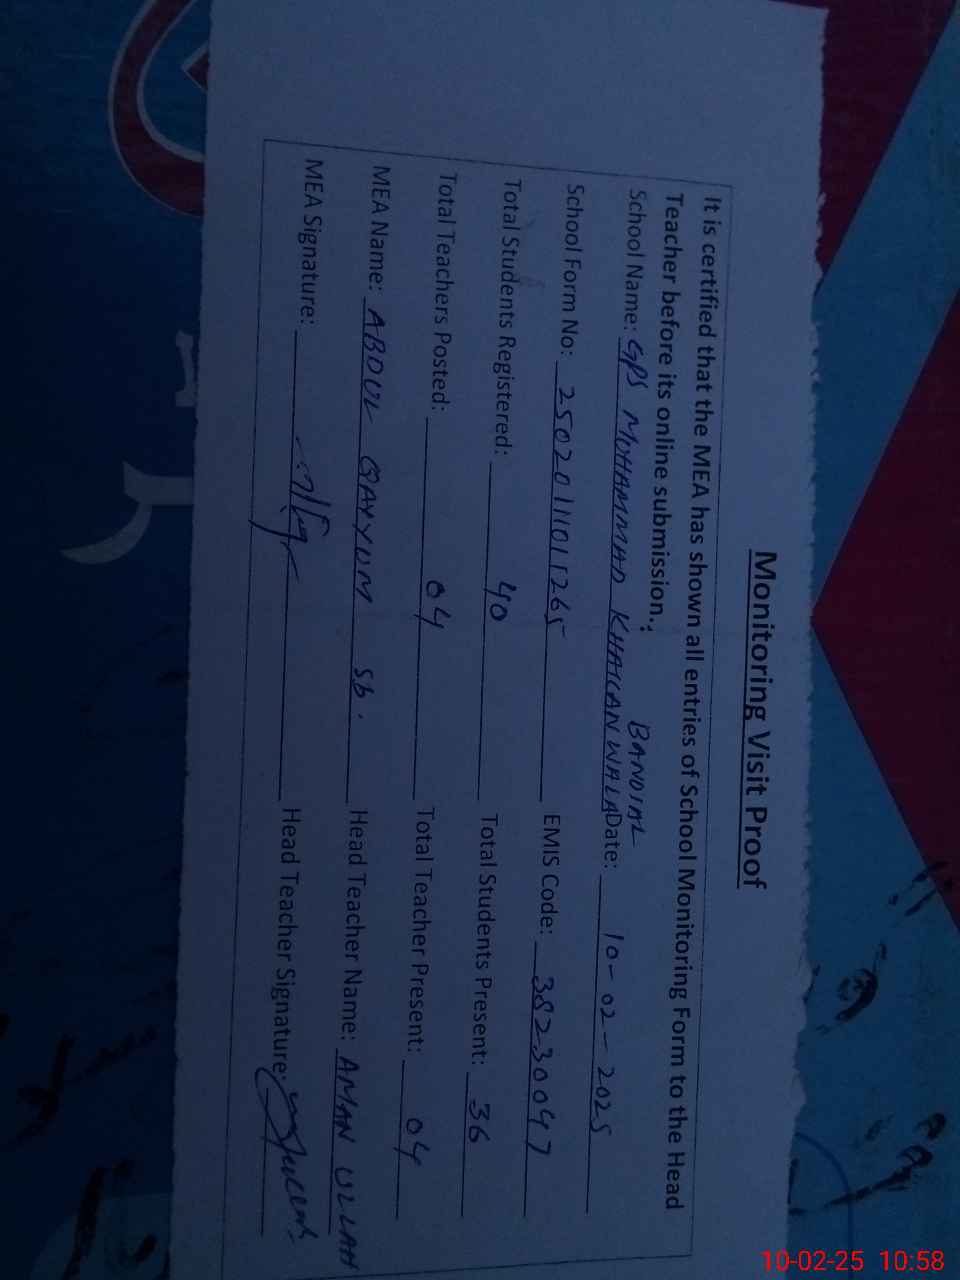 Monitoring Visit Proof
It is certified that the MEA has shown all entries of School Monitoring Form to the Head
Teacher before its online submission.
BANDIAL
School Name: GPS MOHAMMAD KHAILANWALA Date: 10-02-2025
School Form No: 250201101265 EMIS Code: 38230047
Total Students Registered: 40 Total Students Present: 36
Total Teachers Posted: 04 Total Teacher Present: 04
MEA Name: ABDUL QAYYUM Sb. Head Teacher Name: AMAN ULLAH
MEA Signature: Head Teacher Signature:
10-02-25 10:58